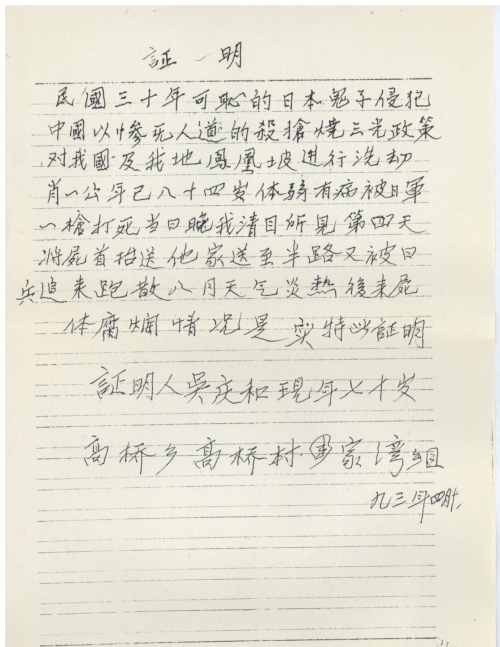 証明
民國三十年可恥的日本鬼子侵犯
中國以慘死人道的殺搶燒三光政策
对我國及我地鳳凰坡進行洗劫
肖一公年已八十四岁体弱有病被日軍
一槍打死当日晚我清目所見第四天
将屍首抬送他家送至半路又被日
兵追来跑散八月天气炎熱後来屍
体腐爛情况是实特此証明
証明人吳庆和現年七十岁
高桥乡高桥村 家湾组
九三年四月